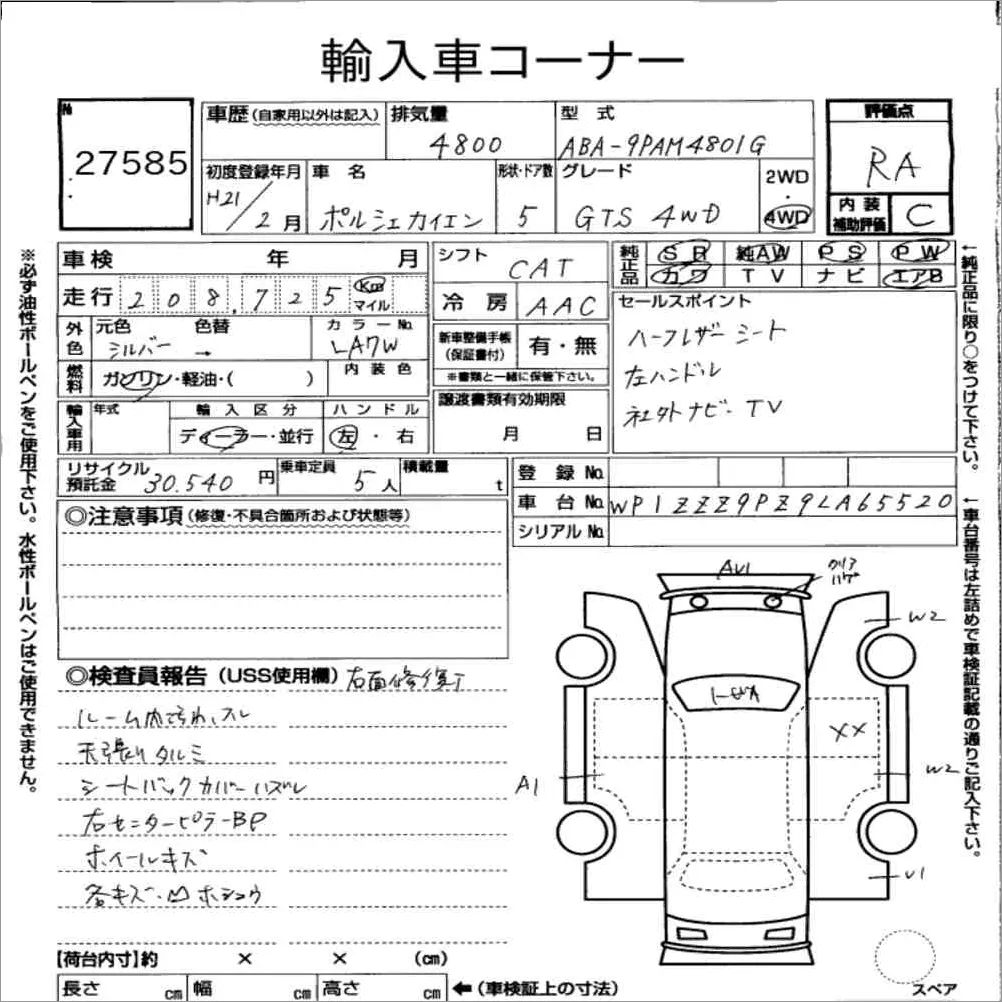 輸入車コーナー
№ 27585
車歴 (自家用以外は記入)
排気量 4800
型式 ABA-9PAM4801G
評価点 RA
内装補助評価 C
初度登録年月 H21/2月
車名 ポルシェカイエン
形状・ドア数 5
グレード GTS 4WD
2WD
・
4WD
車検 年 月
走行 208,725 Km マイル
外色 元色 シルバー → 色替
カラーNo. LA7W
燃料 ガソリン・軽油・( )
内装色
輸入車用 年式
輸入区分 ディーラー・並行
ハンドル 左・右
シフト CAT
冷房 AAC
新車整備手帳(保証書付) 有・無
※書類と一緒に保管下さい。
譲渡書類有効期限
月 日
純正品 SR 純AW PS PW
カワ TV ナビ エアB
セールスポイント
ハーフレザーシート
左ハンドル
社外ナビ・TV
リサイクル預託金 30.540円
乗車定員 5人
積載量 t
登録No.
車台No. WP1ZZZ9PZ9LA65520
シリアルNo.
◎注意事項 (修復・不具合箇所および状態等)
◎検査員報告 (USS使用欄) 右面修復了
ルーム内汚れ、スレ
天張りタルミ
シートバックカバーハズレ
右センターピラーBP
ホイールキズ
各キズ・凹ホショウ
AU1
クリアハゲ
W2
XX
W2
A1
U1
スペア
【荷台内寸】約 × × (cm)
長さ cm 幅 cm 高さ cm ←(車検証上の寸法)
※必ず油性ボールペンをご使用下さい。水性ボールペンはご使用できません。
←純正品に限り○をつけて下さい。
←車台番号は左詰めで車検証記載の通りご記入下さい。